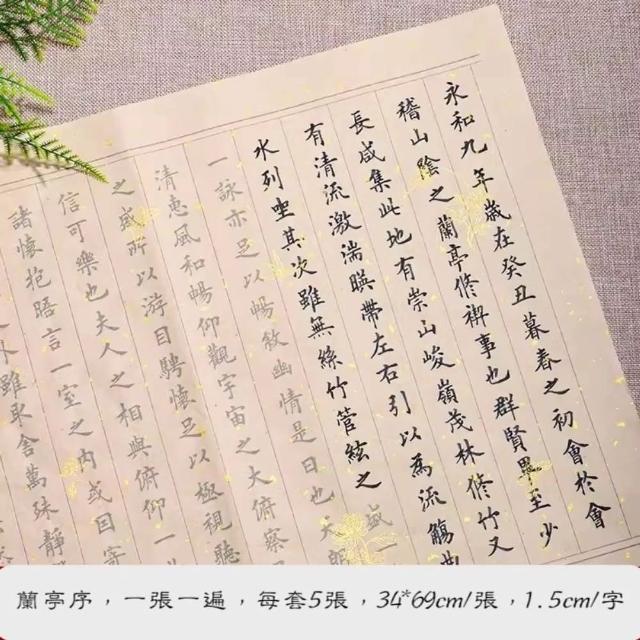 永和九年歲在癸丑暮春之初會於會
稽山陰之蘭亭修禊事也群賢畢至少
長咸集此地有崇山峻嶺茂林修竹又
有清流激湍暎帶左右引以為流觴曲
水列坐其次雖無絲竹管絃之盛一
一詠亦足以暢敘幽情是日也天朗
清惠風和暢仰觀宇宙之大俯察
之盛所以游目騁懷足以極視聽
信可樂也夫人之相與俯仰一
諸懷抱晤言一室之內或因寄
外雖取舍萬殊靜
蘭亭序，一張一遍，每套5張，34*69cm/張，1.5cm/字